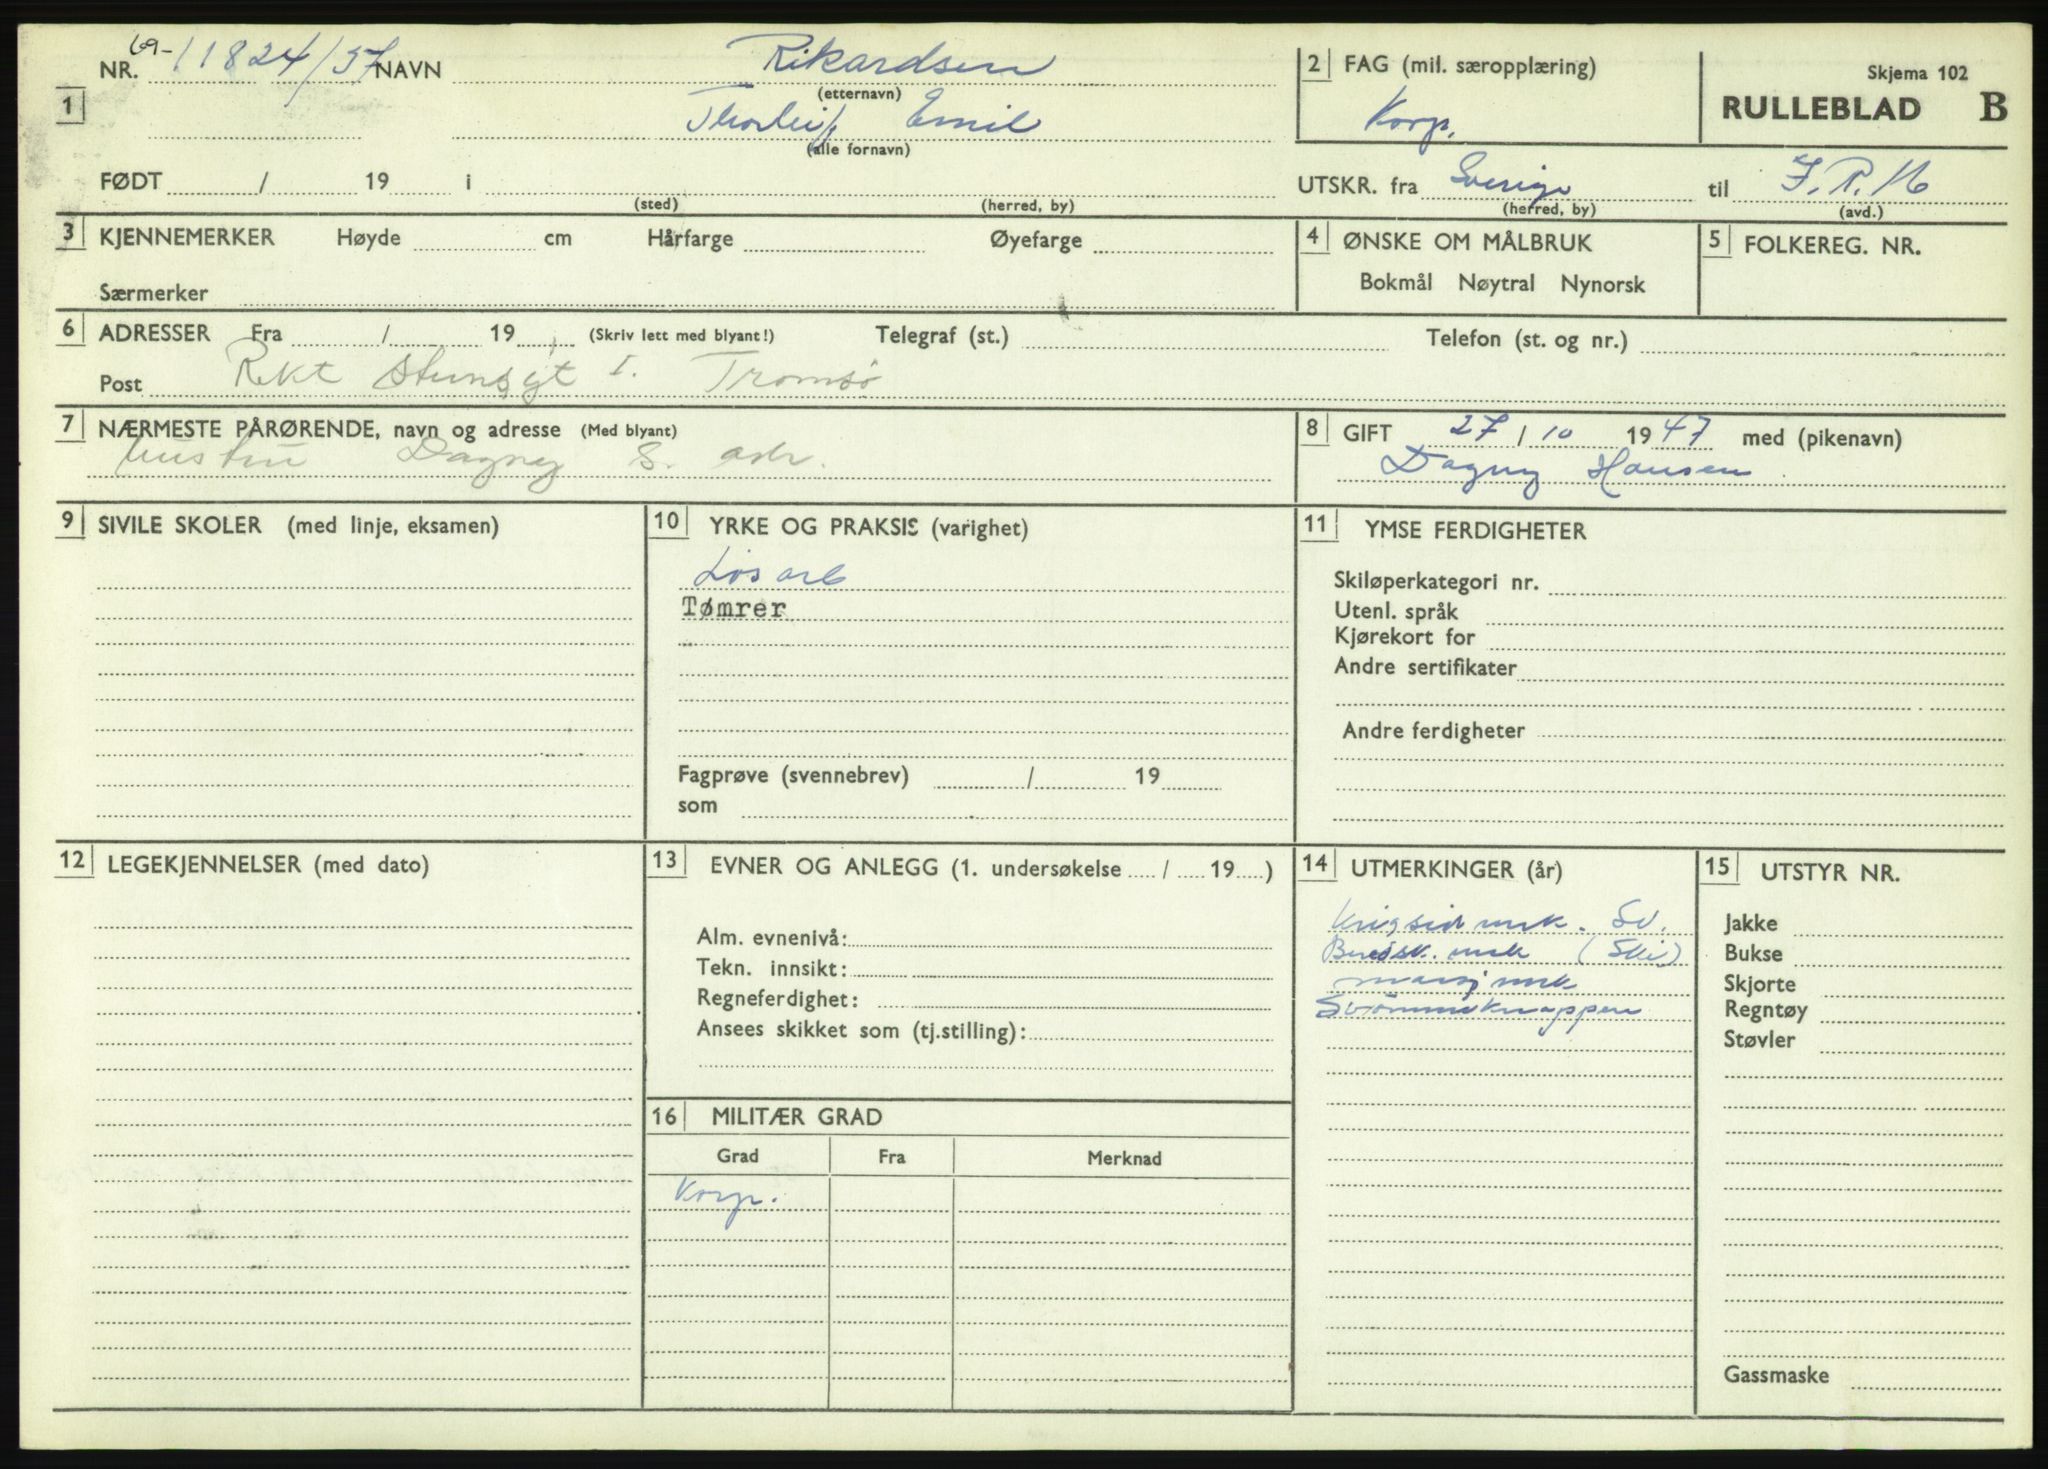 69-
NR. 11824/37 NAVN Rikardsen
(etternavn)
1
Thorleif Emil
(alle fornavn)
FØDT / 19 i
(sted) (herred, by)
2 FAG (mil. særopplæring)
Korp.
Skjema 102
RULLEBLAD B
UTSKR. fra Sverige til I.R.16
(herred, by) (avd.)
3 KJENNEMERKER Høyde cm Hårfarge Øyefarge
Særmerker
4 ØNSKE OM MÅLBRUK
Bokmål Nøytral Nynorsk
5 FOLKEREG. NR.
6 ADRESSER Fra / 19 (Skriv lett med blyant!) Telegraf (st.) Telefon (st. og nr.)
Post I. Tromsø
7 NÆRMESTE PÅRØRENDE, navn og adresse (Med blyant)
hustru Dagny S. adr.
8 GIFT 27 / 10 1947 med (pikenavn)
Dagny Hansen
9 SIVILE SKOLER (med linje, eksamen)
10 YRKE OG PRAKSIS (varighet)
Løsarb
Tømrer
Fagprøve (svennebrev) / 19
som
11 YMSE FERDIGHETER
Skiløperkategori nr.
Utenl. språk
Kjørekort for
Andre sertifikater
Andre ferdigheter
12 LEGEKJENNELSER (med dato)
13 EVNER OG ANLEGG (1. undersøkelse / 19 )
Alm. evnenivå:
Tekn. innsikt:
Regneferdighet:
Ansees skikket som (tj.stilling):
14 UTMERKINGER (år)
mrk. Sv.
mrk (Ski)
marsj mrk
Svømmeknappen
15 UTSTYR NR.
Jakke
Bukse
Skjorte
Regntøy
Støvler
Gassmaske
16 MILITÆR GRAD
Grad Fra Merknad
Korp.